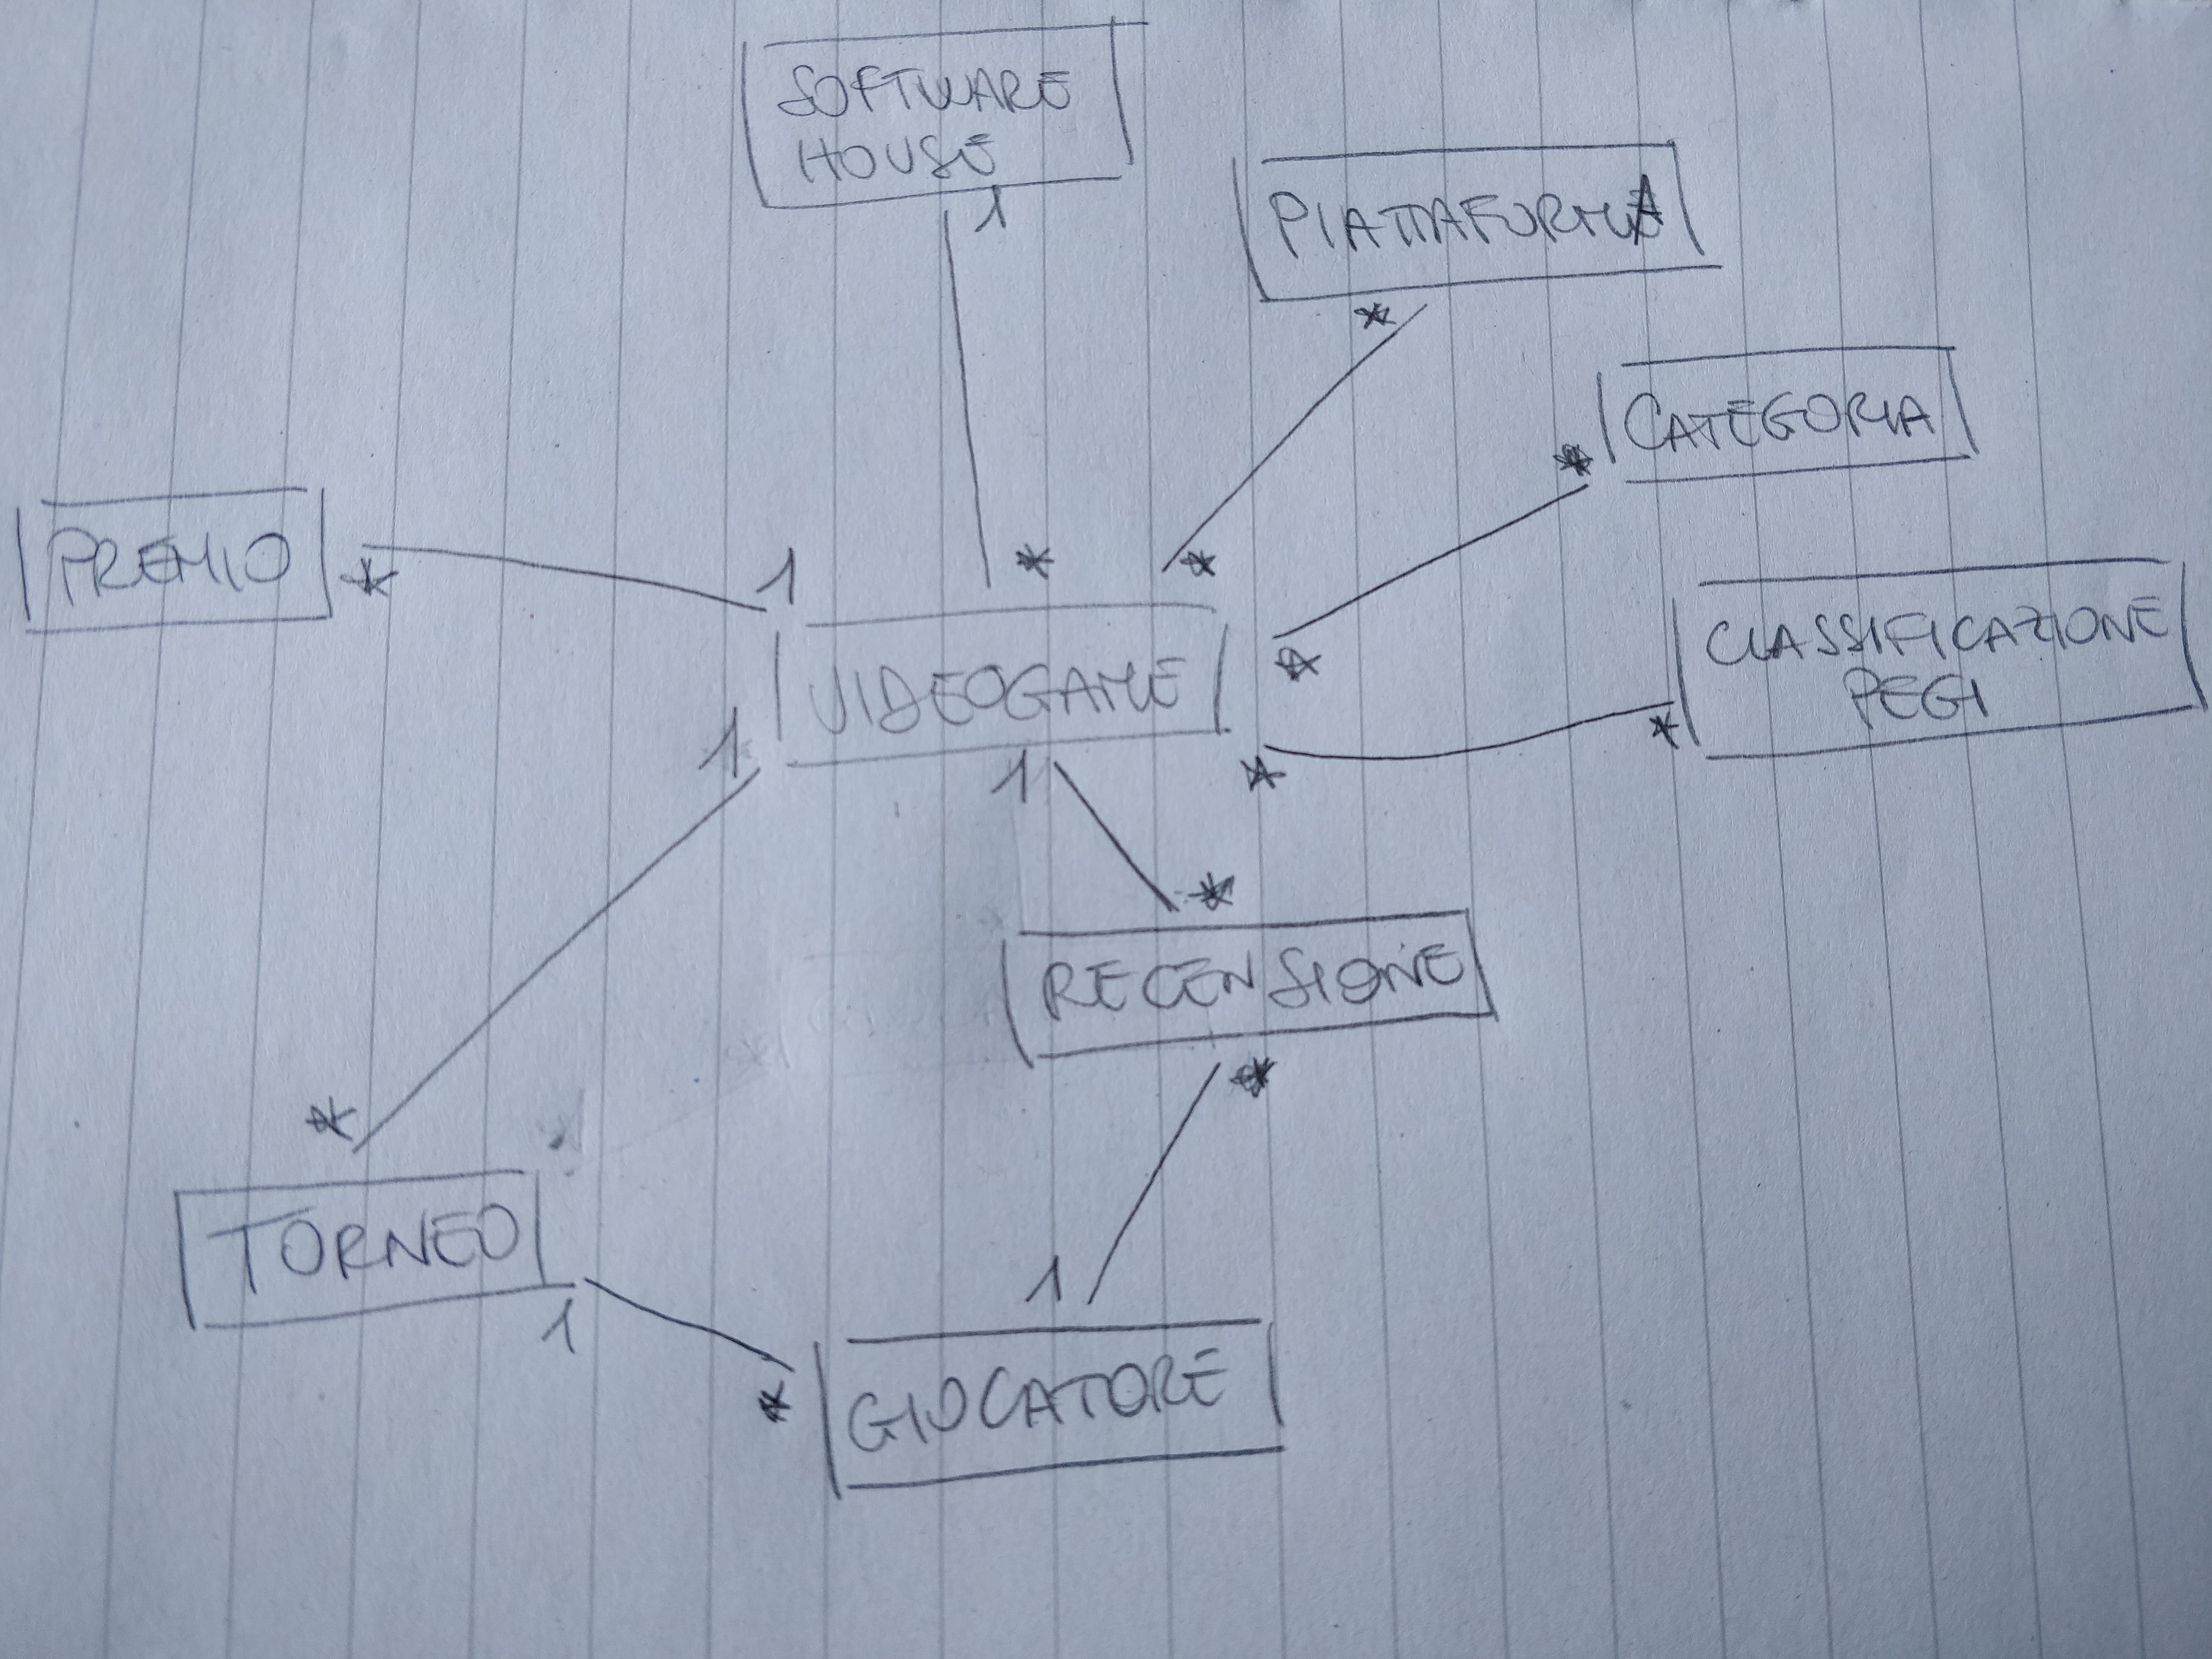 SOFTWARE
HOUSE
1
PIATTAFORMA
*
CATEGORIA
*
PREMIO
*
1
*
*
CLASSIFICAZIONE
PEGI
*
VIDEOGAME
*
1
1
*
*
RECENSIONE
*
*
TORNEO
1
1
*
GIOCATORE